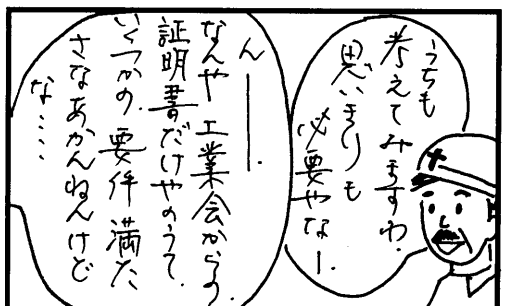 うちも
考えてみますわ.
思いきりも
必要やなー.
んー.
なんや工業会からの
証明書だけやのうて.
いくつかの要件満た
さなあかんねんけど
な‥‥